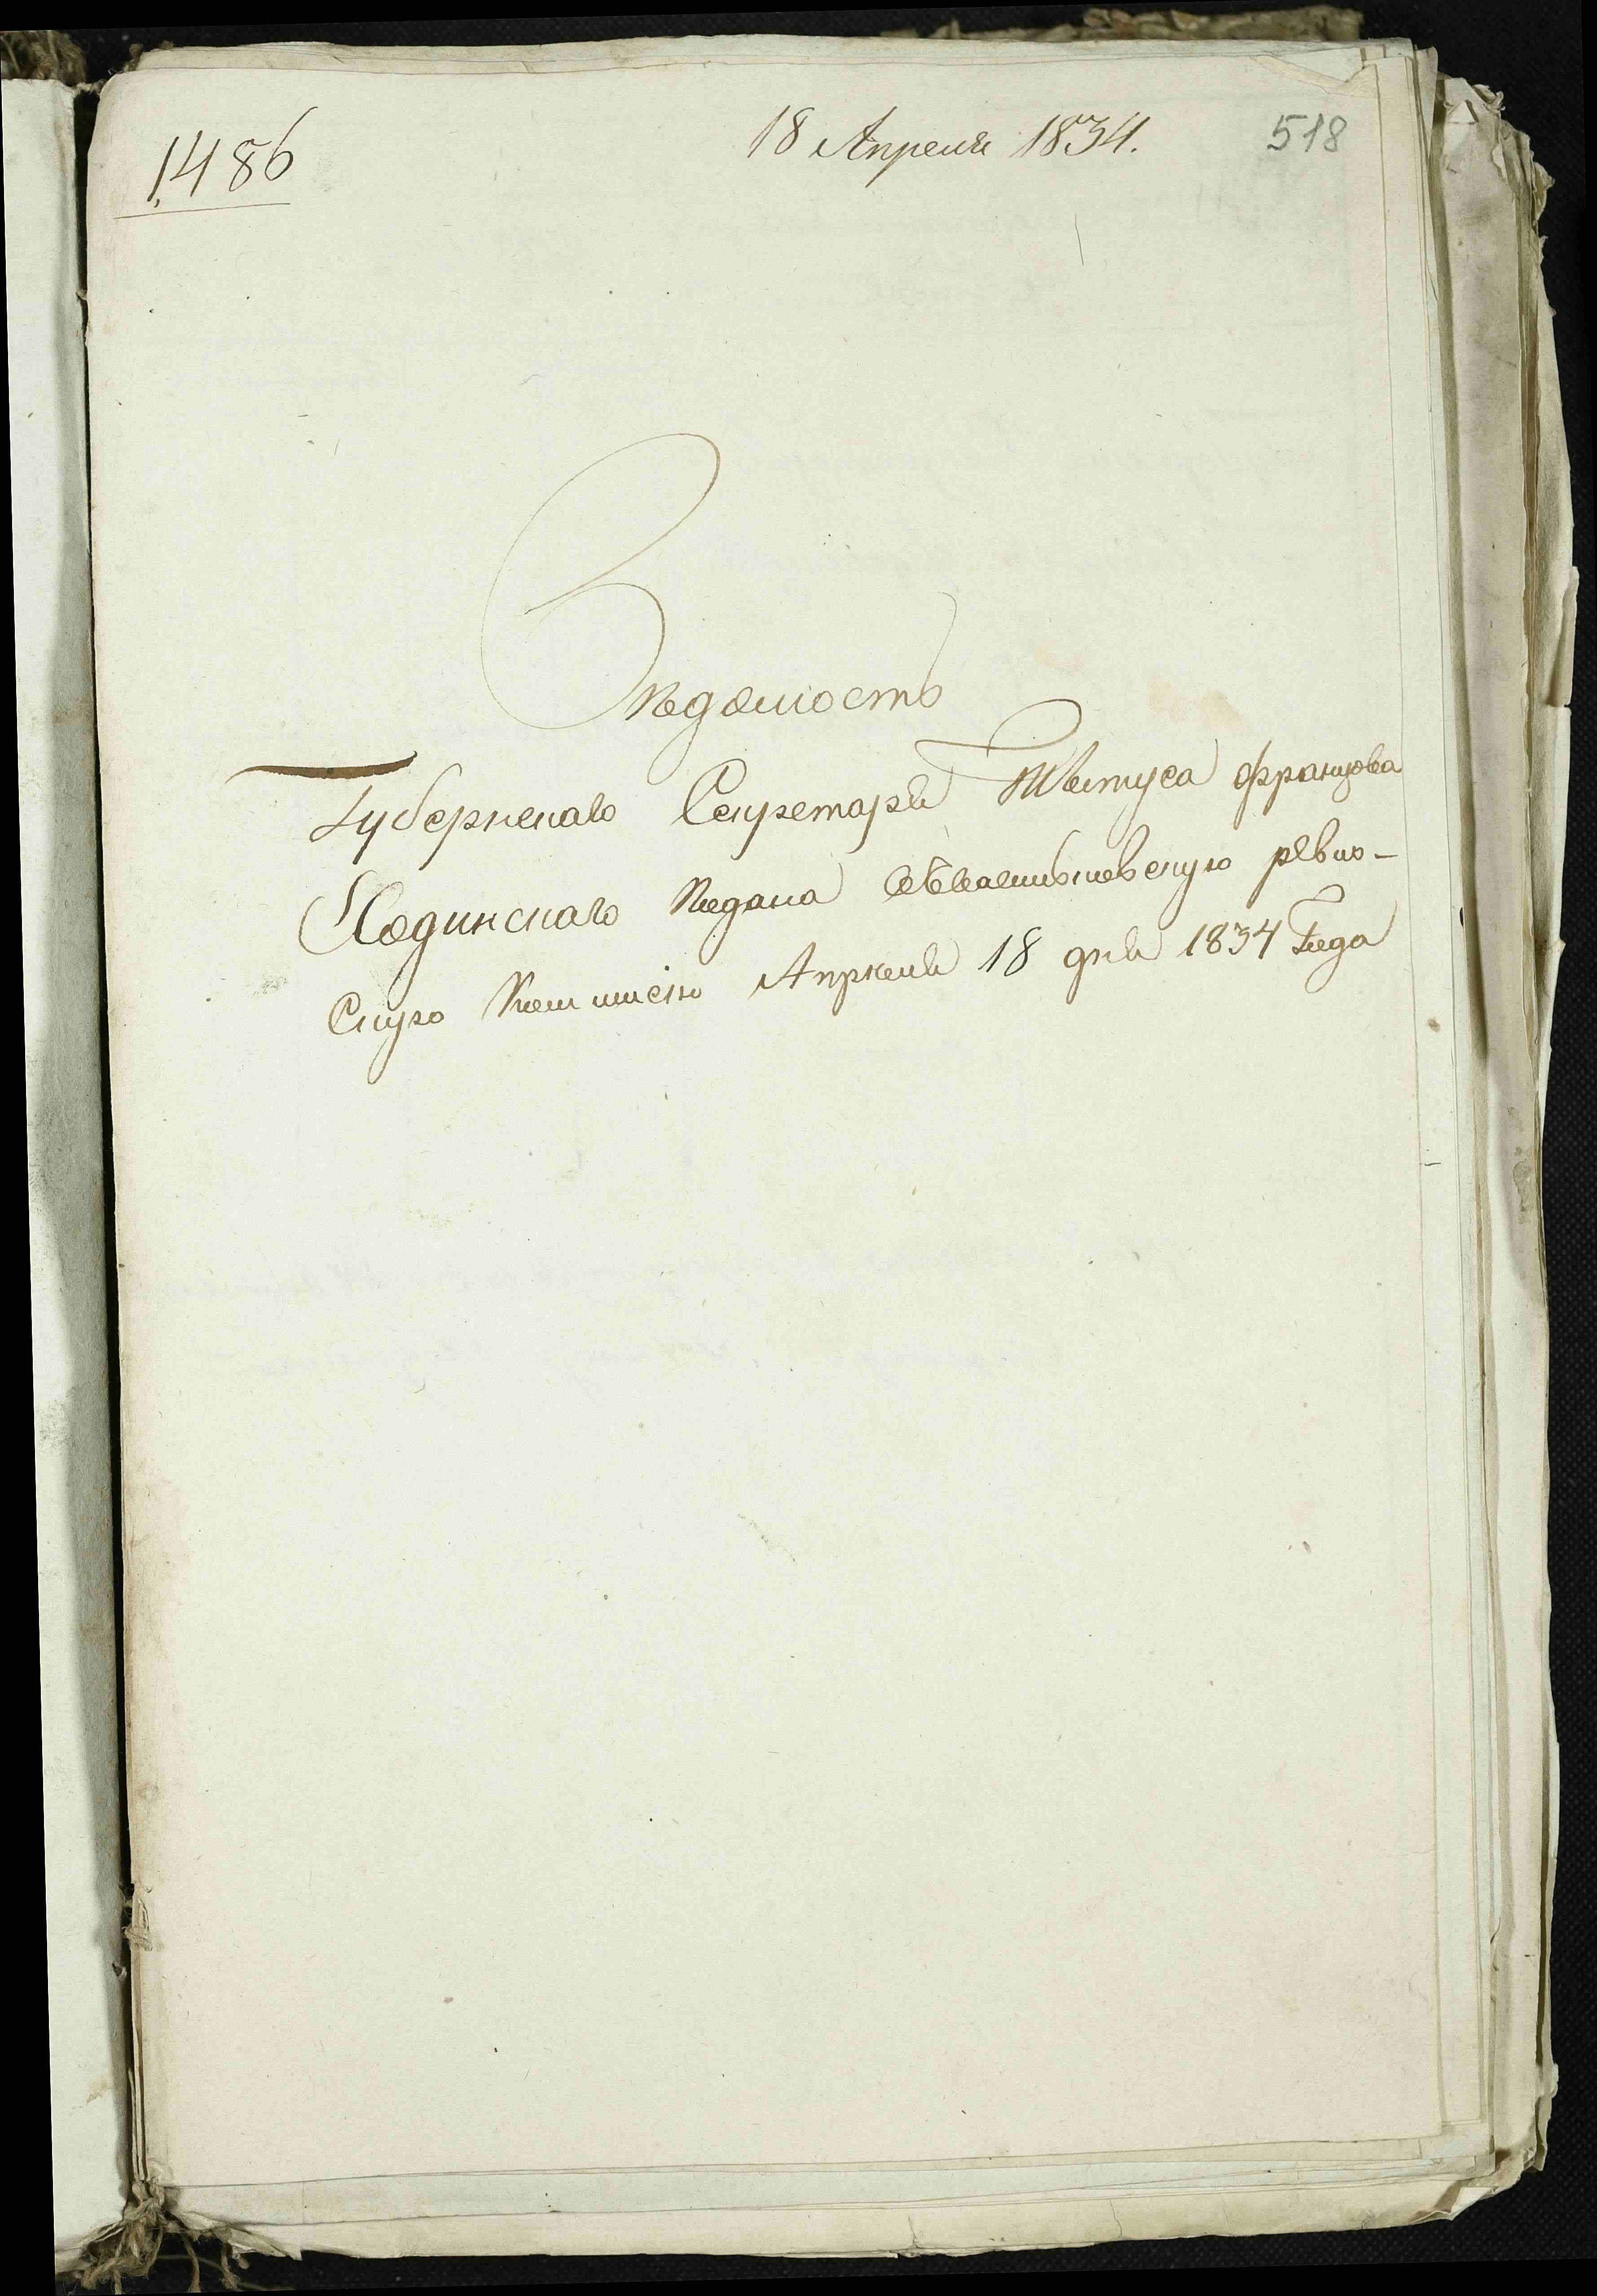 1486
18 Апреля 1834.
518
Вѣдомость
Губернскаго Секретаря Титуса Францова
Лодинскаго Подана
Скую Коммисію Апреля 18 дня 1834 Года